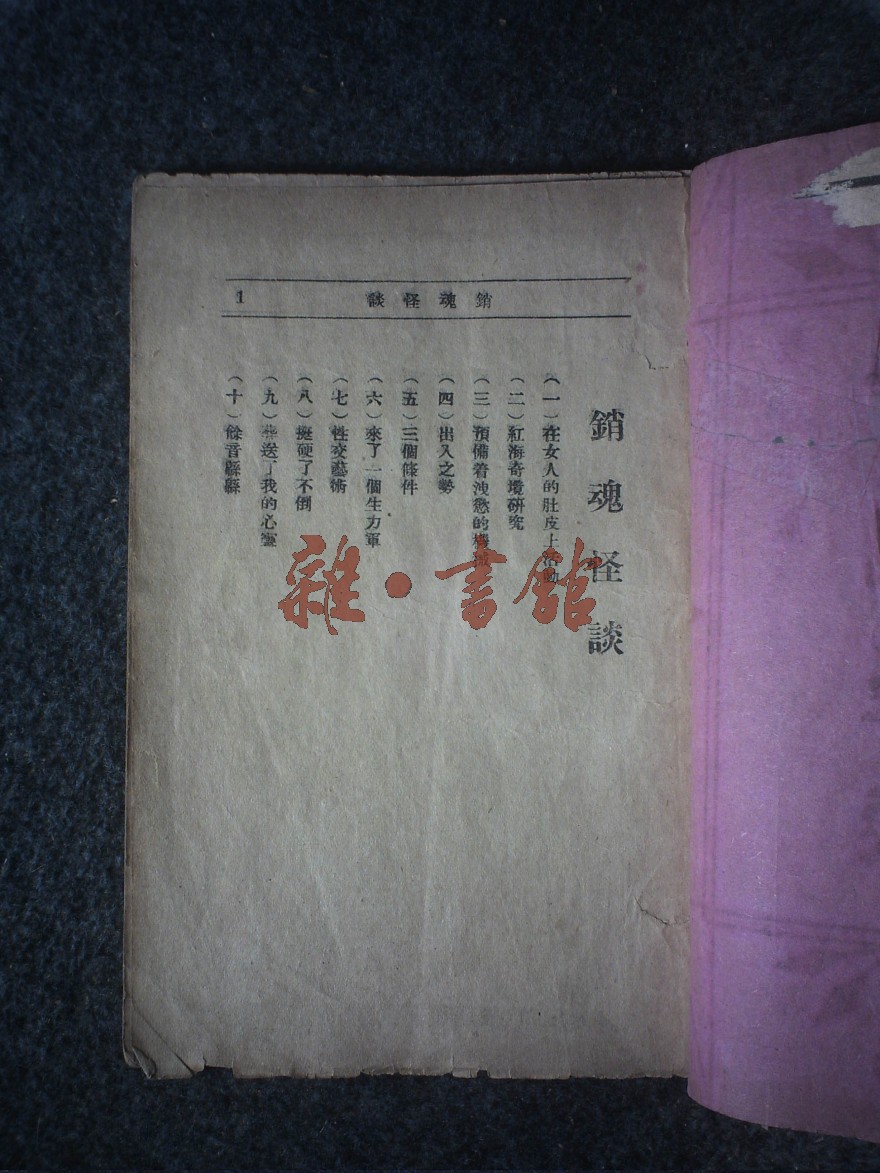 銷魂怪談
1
銷魂怪談
(一)在女人的肚皮上活動
(二)紅海奇境研究
(三)預備着洩慾的機械
(四)出入之勢
(五)三個條件
(六)來了一個生力軍
(七)性交藝術
(八)挺硬了不倒
(九)葬送了我的心靈
(十)餘音縣縣
雜·書館